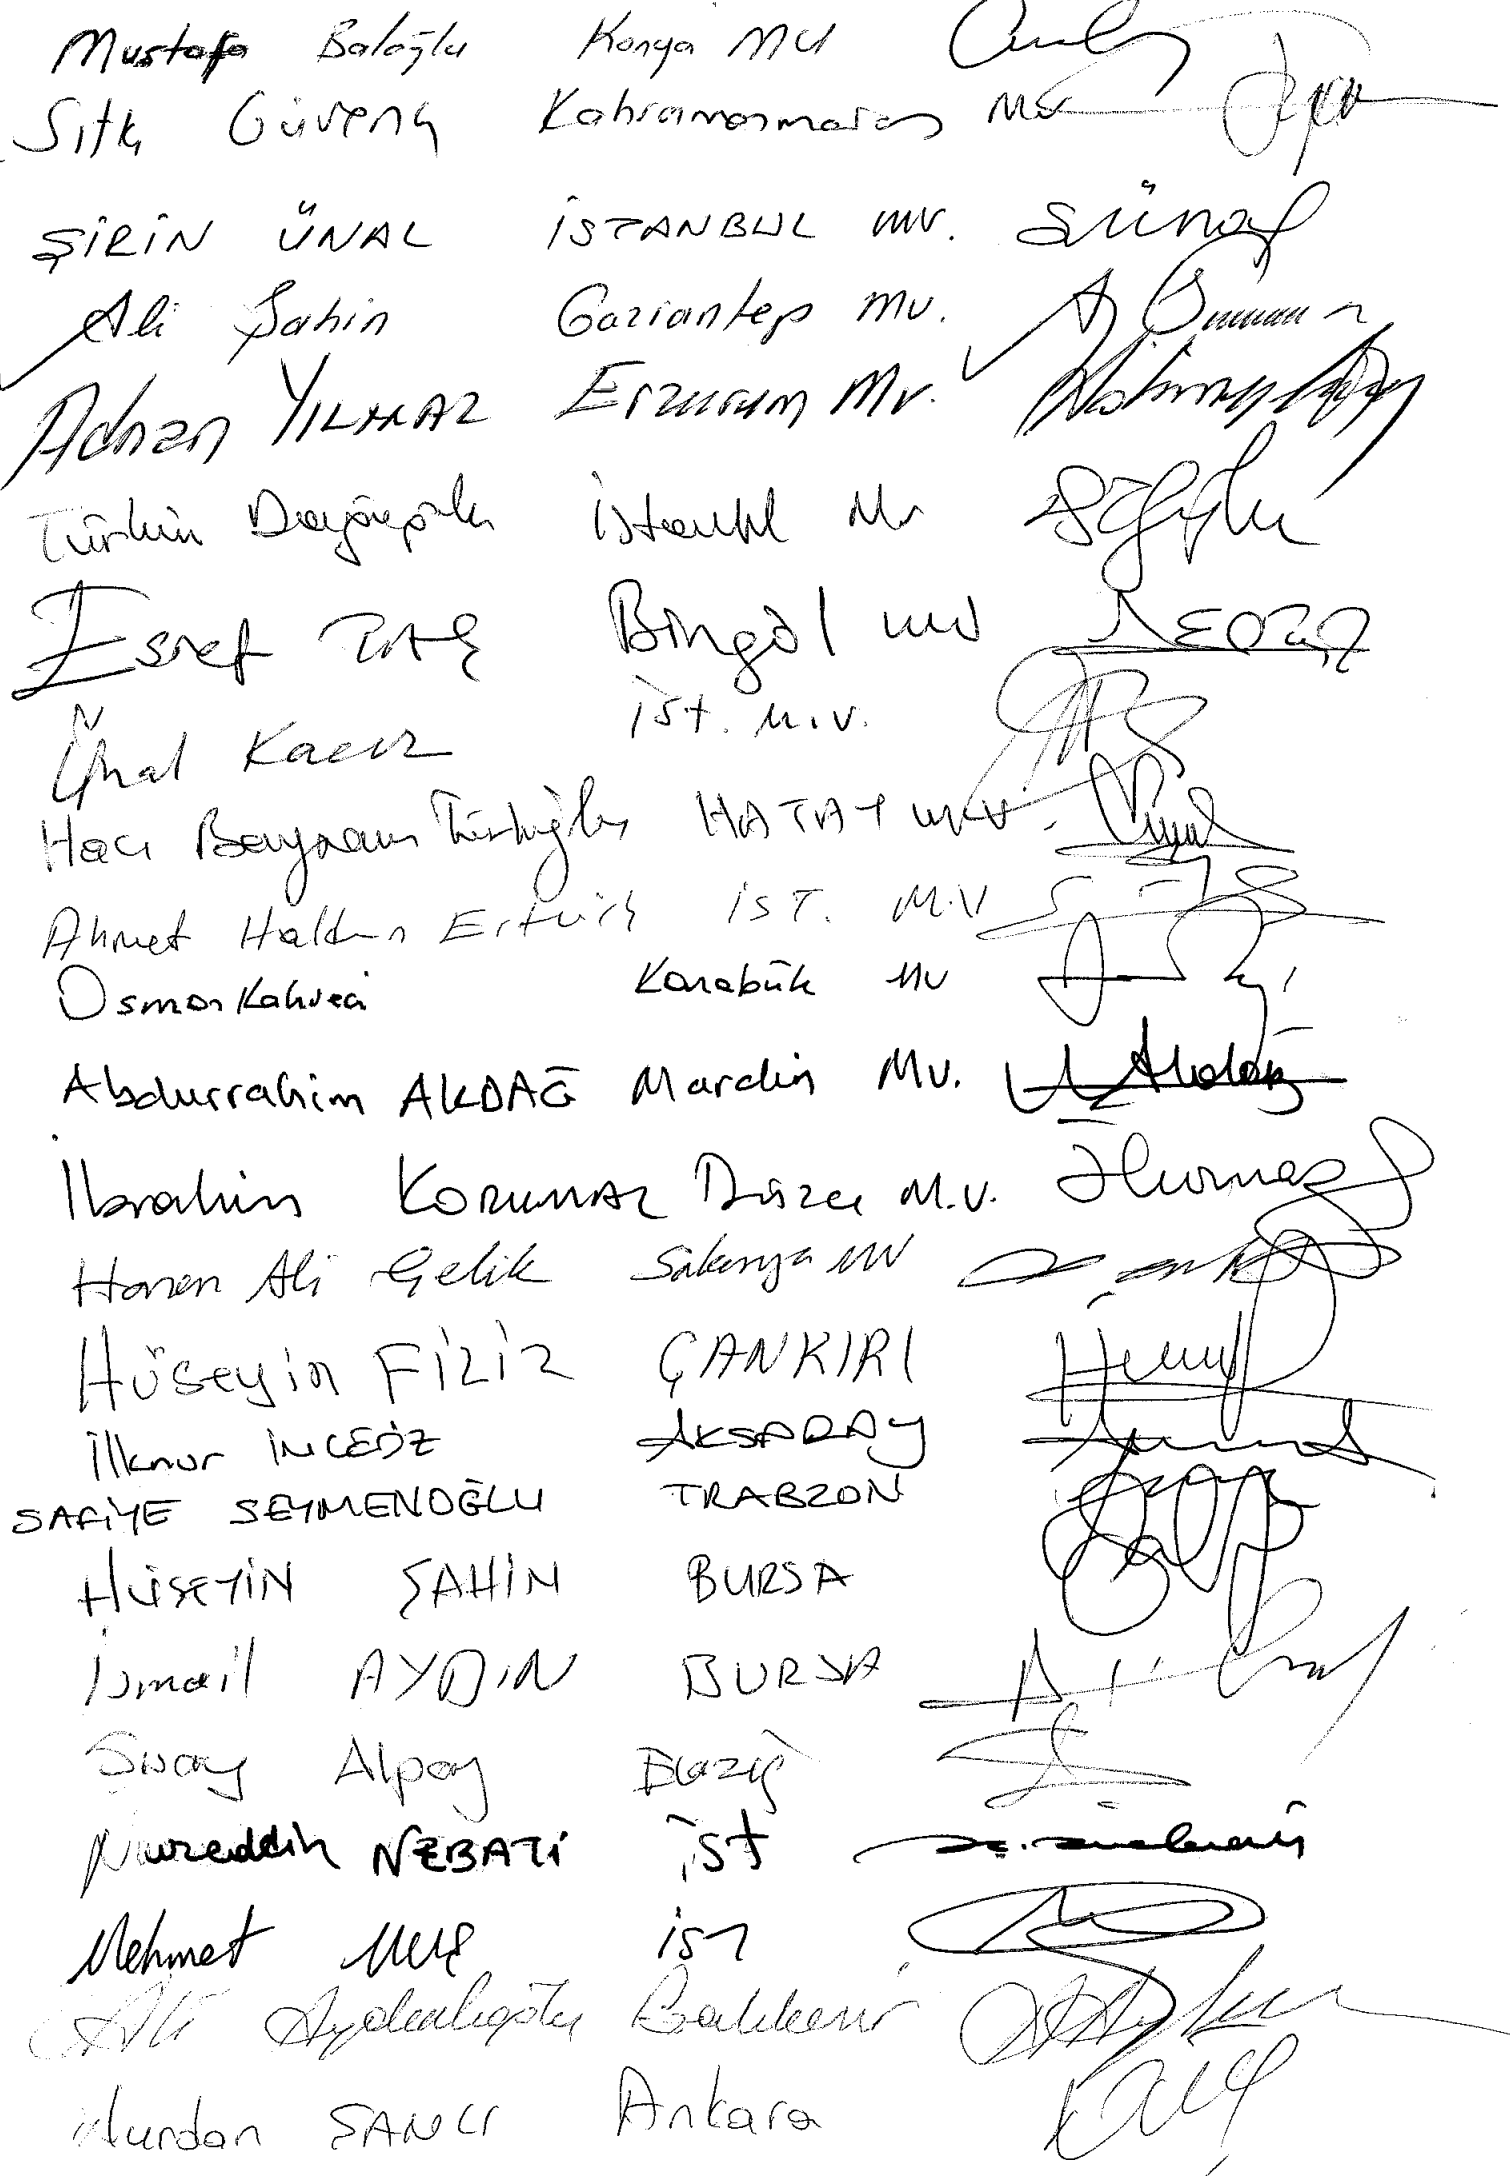 Mustafa Baloğlu Konya MV
Sıtkı Güvenç Kahramanmaraş Mv
ŞİRİN ÜNAL İSTANBUL mv. SÜnal
Ali Şahin Gaziantep mv.
Adnan YILMAZ Erzurum Mv.
Türkan Dağoğlu İstanbul Mv
Eşref TAŞ Bingöl mv
Ünal Kacır ist. M.V.
Hacı Bayram Türkoğlu HATAY M.V.
Ahmet Haldun Ertürk İST. M.V
Osman Kahveci Karabük MV
Abdurrahim AKDAĞ Mardin Mv. Akdağ
İbrahim KORKMAZ Düzce M.V.
Hasan Ali Çelik Sakarya MV
Hüseyin FİLİZ ÇANKIRI
İlknur İNCEÖZ AKSARAY
SAFİYE SEYMENOĞLU TRABZON
HÜSEYİN ŞAHİN BURSA
İsmail AYDIN BURSA
Şuay Alpay Elazığ
Nureddin NEBATİ İST
Mehmet MUŞ İST
Ali Aydınlıoğlu Balıkesir
Nurdan ŞANLI Ankara